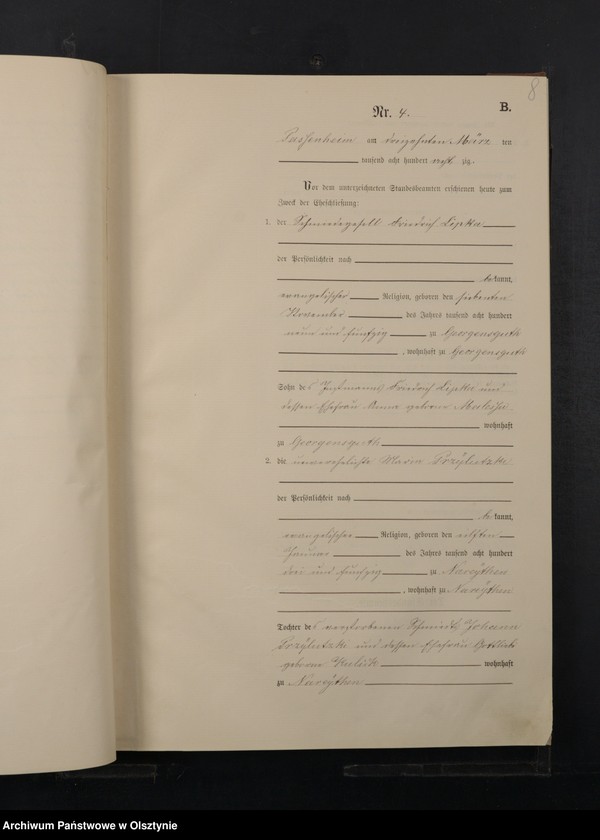 8
Nr. 4.
B.
Passenheim am dreizehnten März ten
tausend acht hundert acht zig.
Vor dem unterzeichneten Standesbeamten erschienen heute zum
Zweck der Eheschließung:
1. der Schmiedegesell Friedrich Lipka
der Persönlichkeit nach
be kannt,
evangelischer Religion, geboren den siebenten
November des Jahres tausend acht hundert
neun und fünfzig zu Georgensguth
, wohnhaft zu Georgensguth
Sohn des Instmanns Friedrich Lipka und
dessen Ehefrau Anna geborne
wohnhaft
zu Georgensguth
2. die unverehelichte Maria Przylutzka
der Persönlichkeit nach
be kannt,
evangelischer Religion, geboren den elften
Januar des Jahres tausend acht hundert
drei und fünfzig zu Nareythen
, wohnhaft zu Nareythen
Tochter des verstorbenen Schmieds Johann
Przylutzki und dessen Ehefrau
geborne wohnhaft
zu Nareythen
Archiwum Państwowe w Olsztynie